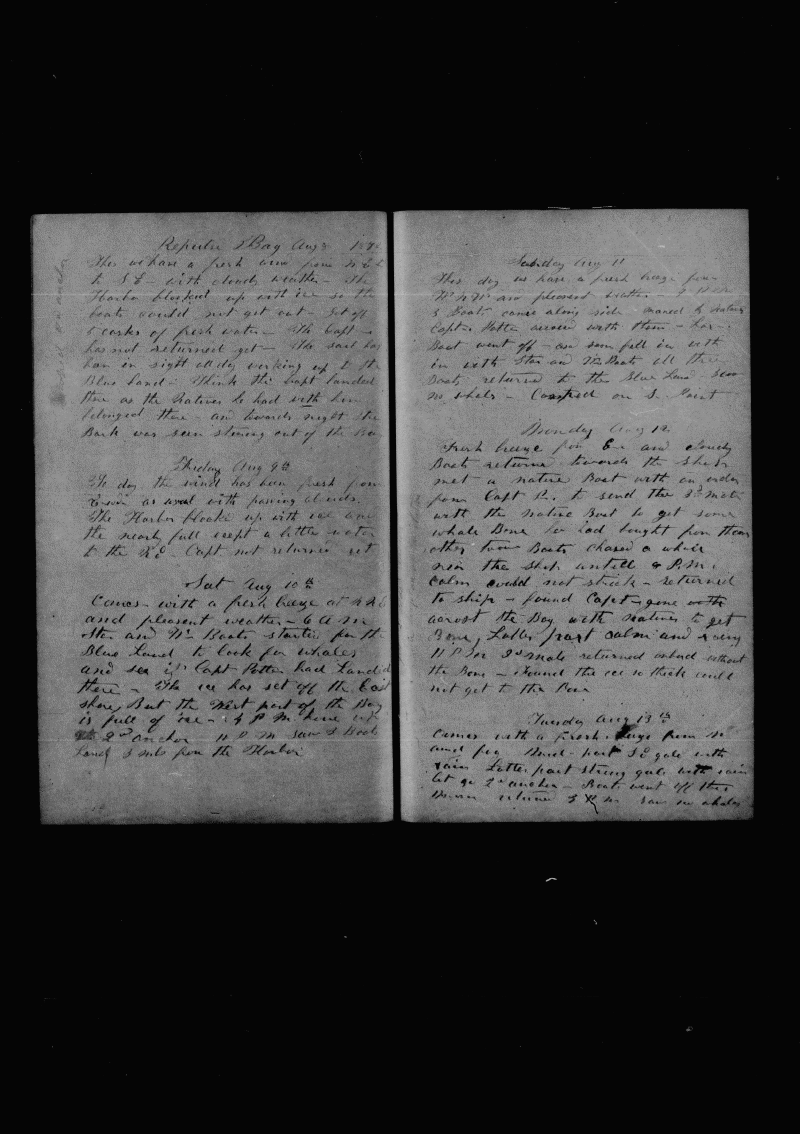 Repulse Bay Aug 8 187
This we have a fresh wind from N E
to S E - with cloudy weather - The
Harbor blocked up with ice so the
boats could not get out - Got off
5 casks of fresh water - The Capt -
has not returned yet - The sail has
ben in sight all day working up to the
Blue Land - Think the Capt landed
there as the Natives he had with him
belonged there - and towards night the
Bark was seen steering out of the Bay
Friday Aug 9th
The day the wind has been fresh from
as usual with passing clouds.
The Harbor blockd up with ice and
the nearly full except a little water
to the Capt not returned yet
Sat Aug 10th
Comes - with a fresh breeze at N N E
and pleasent weather - 6 A M
Str and Wt Boats started for the
Blue Land to look for whales
and see if Capt Potter had Landed
there - The ice has set off the East
shore But the West part of the Bay
is full of ice - 4 P M
2nd anchor 11 P M saw 3 Boats
land 3 mls from the Harbor
Saturday Aug 11
This day we have a fresh breeze from
W N W and pleasent weather -
3 Boats came along side maned by Natives
Capt Potter arived with them -
Boat went off - and soon fell in with
in with Star and Wt Boats all the
Boats returned to the Blue Land - Saw
no whales - Camped on S. Point
Monday Aug 12
Fresh breeze from E and cloudy
Boats returned towards the Ship
met a native Boat with an order
from Capt P. to send the 3d mate
with the native Boat to get some
whale Bone he had bought from them
other two Boats chased a whale
near the Ship untill 4 P.M.
Calm could not strike - returned
to ship - found Capt gone with
acrost the Bay with natives to get
Bone, Latter part calm and rainy
11 P M 3d mate returned onbord without
the Bone - Found the ice so thick could
not get to the Bone
Tuesday Aug 13th
Comes with a fresh breeze from N
and fog Mid - part S E gale with
rain Latter part strong gale with rain
let go 2d anchor - Boats went off the
returned 5 P m saw no whales